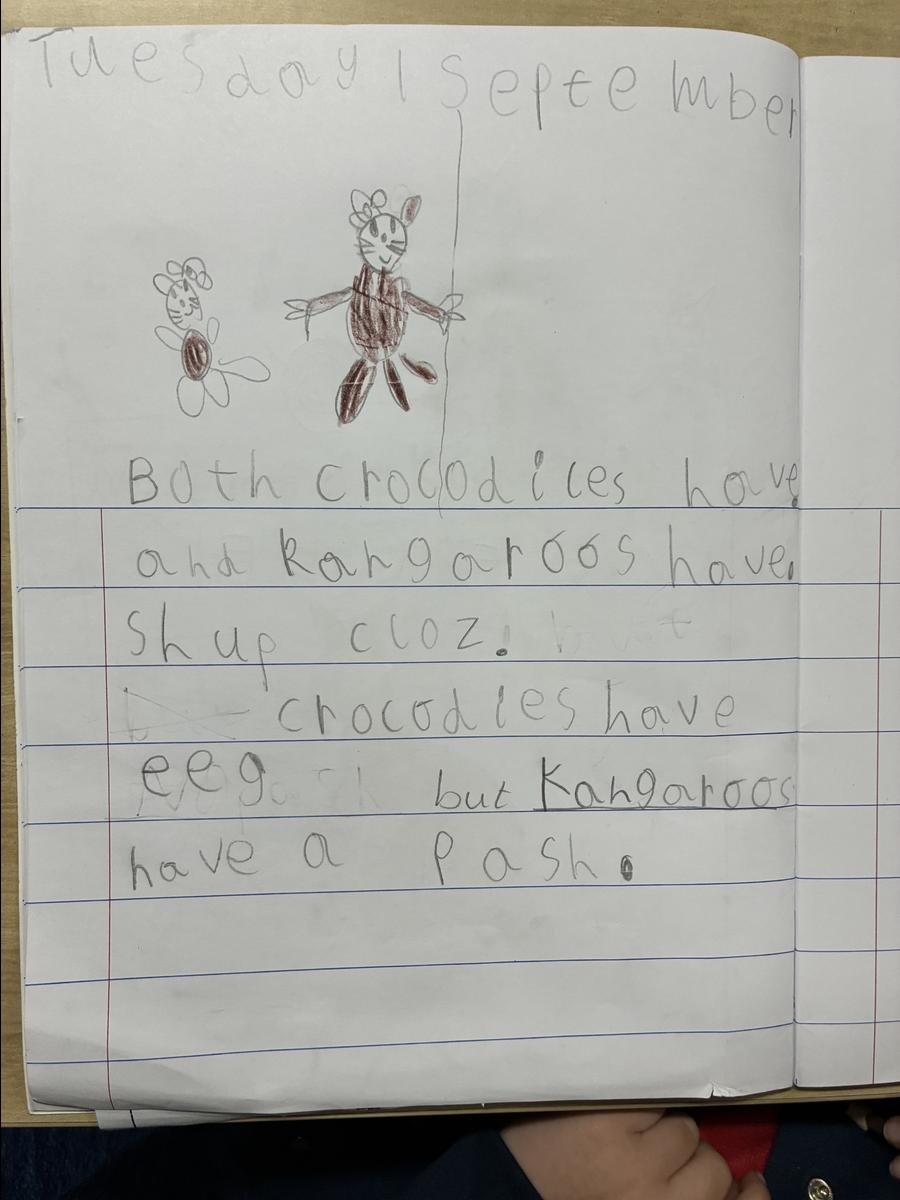 Tuesday 1 September
Both crocodiles have
and kangaroos have.
Shup cloz.
crocodles have
eeg but Kangaroos
have a Pash.